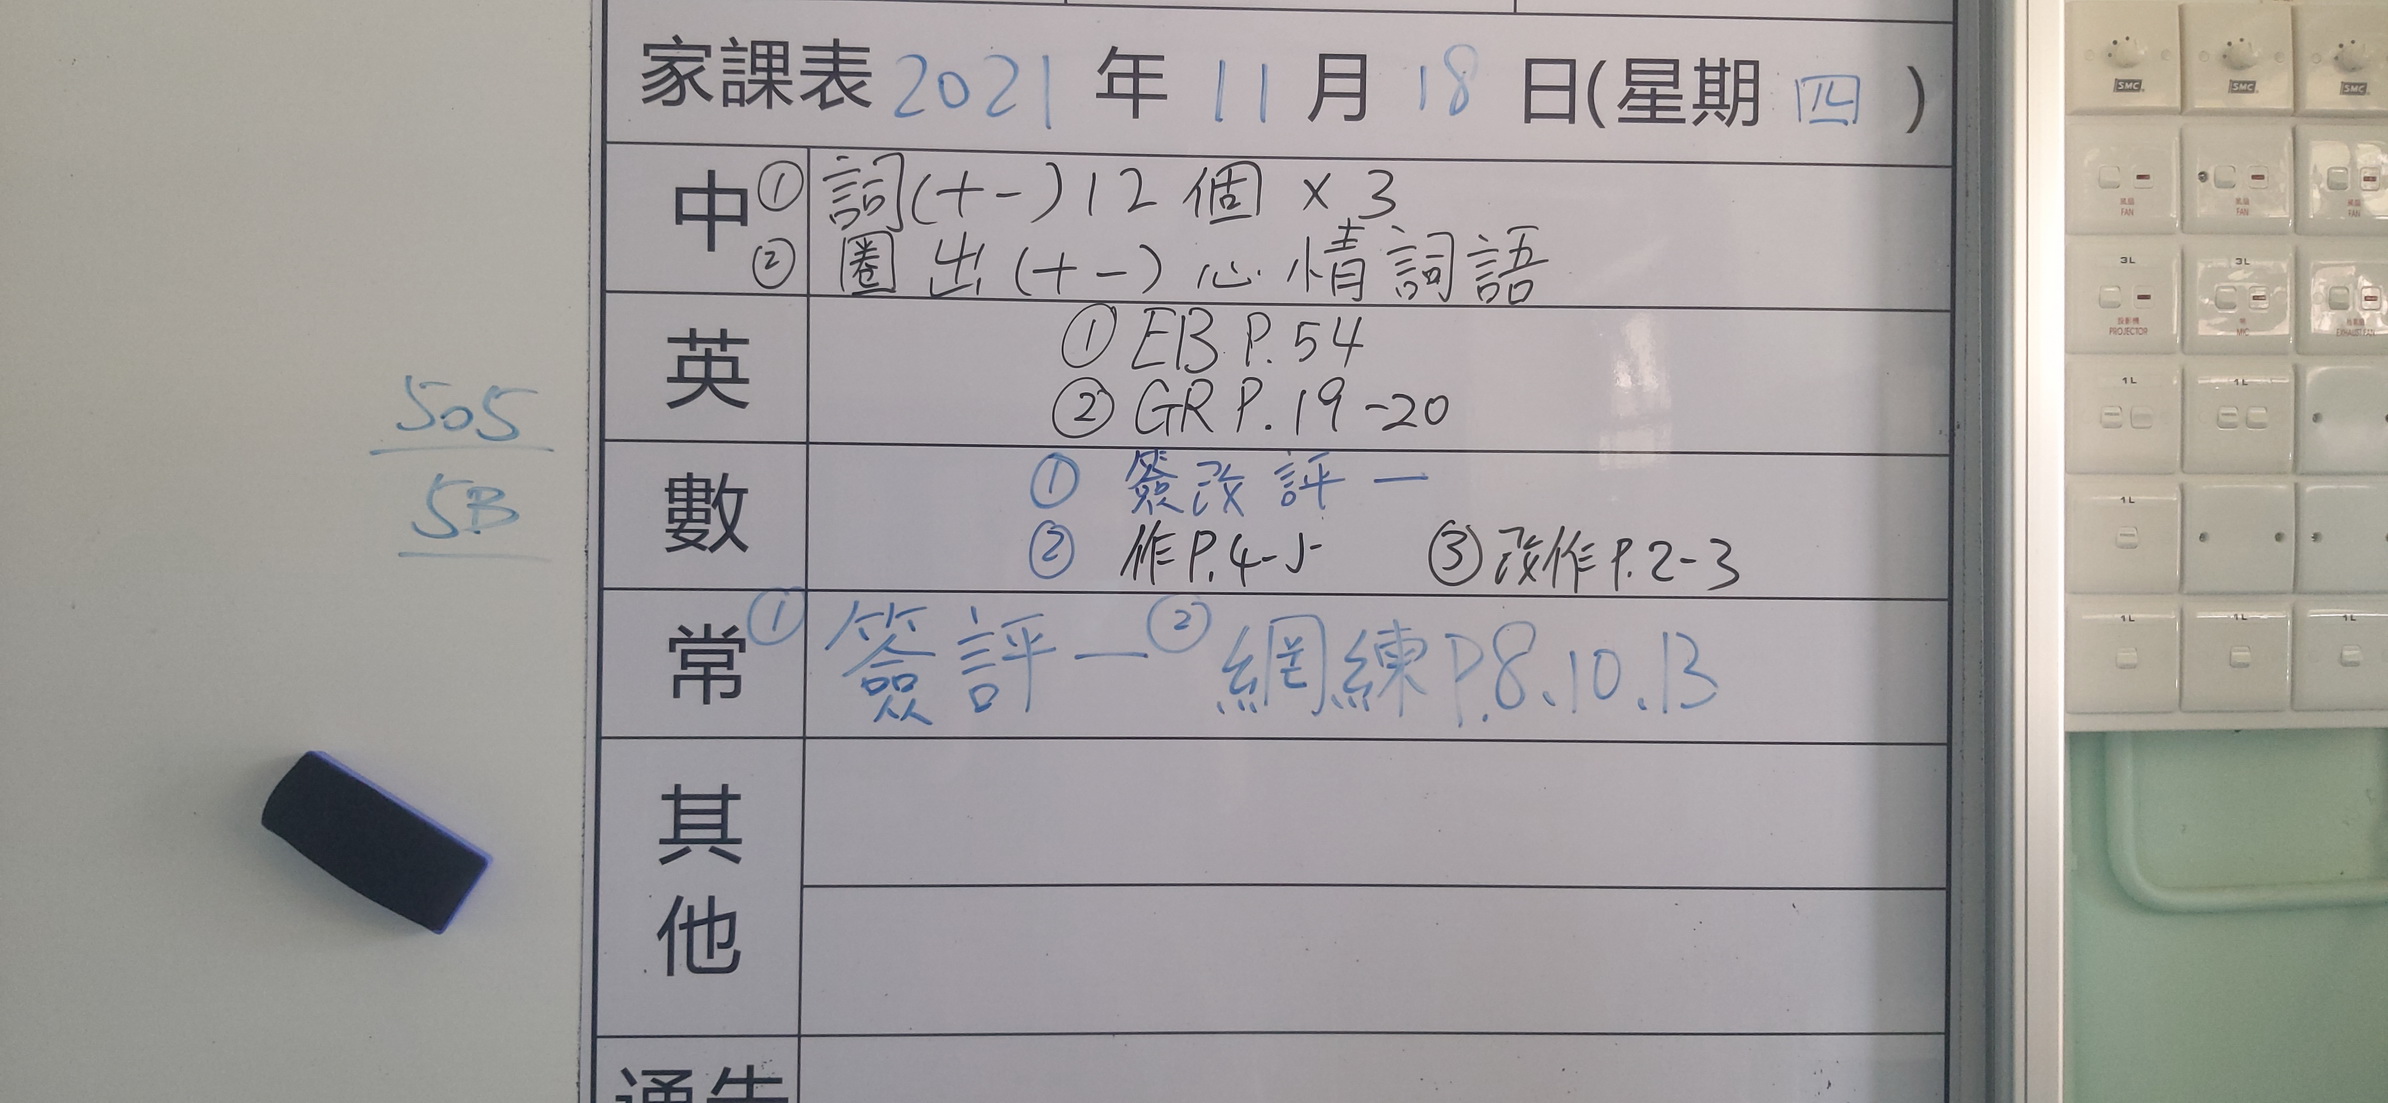 家課表 2021 年 11 月 18 日(星期 四 )
中 ① 詞(十一) 12 個 × 3
② 圈出(十一)心情詞語
英 ① EB P.54
② GR P.19-20
數 ① 簽改評一
② 作P.4-5 ③ 改作P.2-3
常 ① 簽評一 ② 網練P.8、10、13
其他
通告
505
5B
SMC SMC SMC
風扇 FAN 風扇 FAN 風扇 FAN
3L 3L
投影機 PROJECTOR MIC EXHAUST FAN
1L 1L
1L
1L 1L 1L